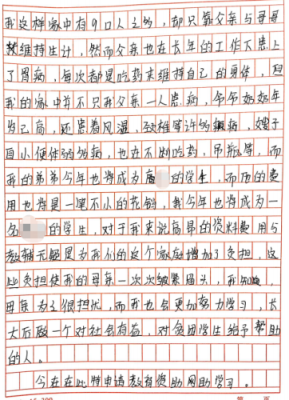 我这样家中有9口人之多，却只靠父亲与哥哥
来维持生计，然而父亲也在长年的工作下患上
了胃病，每次都是吃药来维持自己的身体，但
我的家中并不只我父亲一人患病，爷爷奶奶年
岁已高，还患有风湿、颈椎等许多疾病，嫂子
自小便体弱多病，也在不断吃药、吊瓶等，而
我的弟弟今年也将成为高 的学生，而历的费
用也将是一笔不小的花销，我今年也将成为一
名 的学生，对于我来说高昂的资料费用与
教辅无疑是为我们的这个家庭增加了负担，这
些负担使我的母亲一次次皱紧眉头，我知晓，
母亲为之很担忧，而我也会更加努力学习，长
大后做一个对社会有益，对贫困学生给予帮助
的人。
今在在此特申请教育资助用助学习。